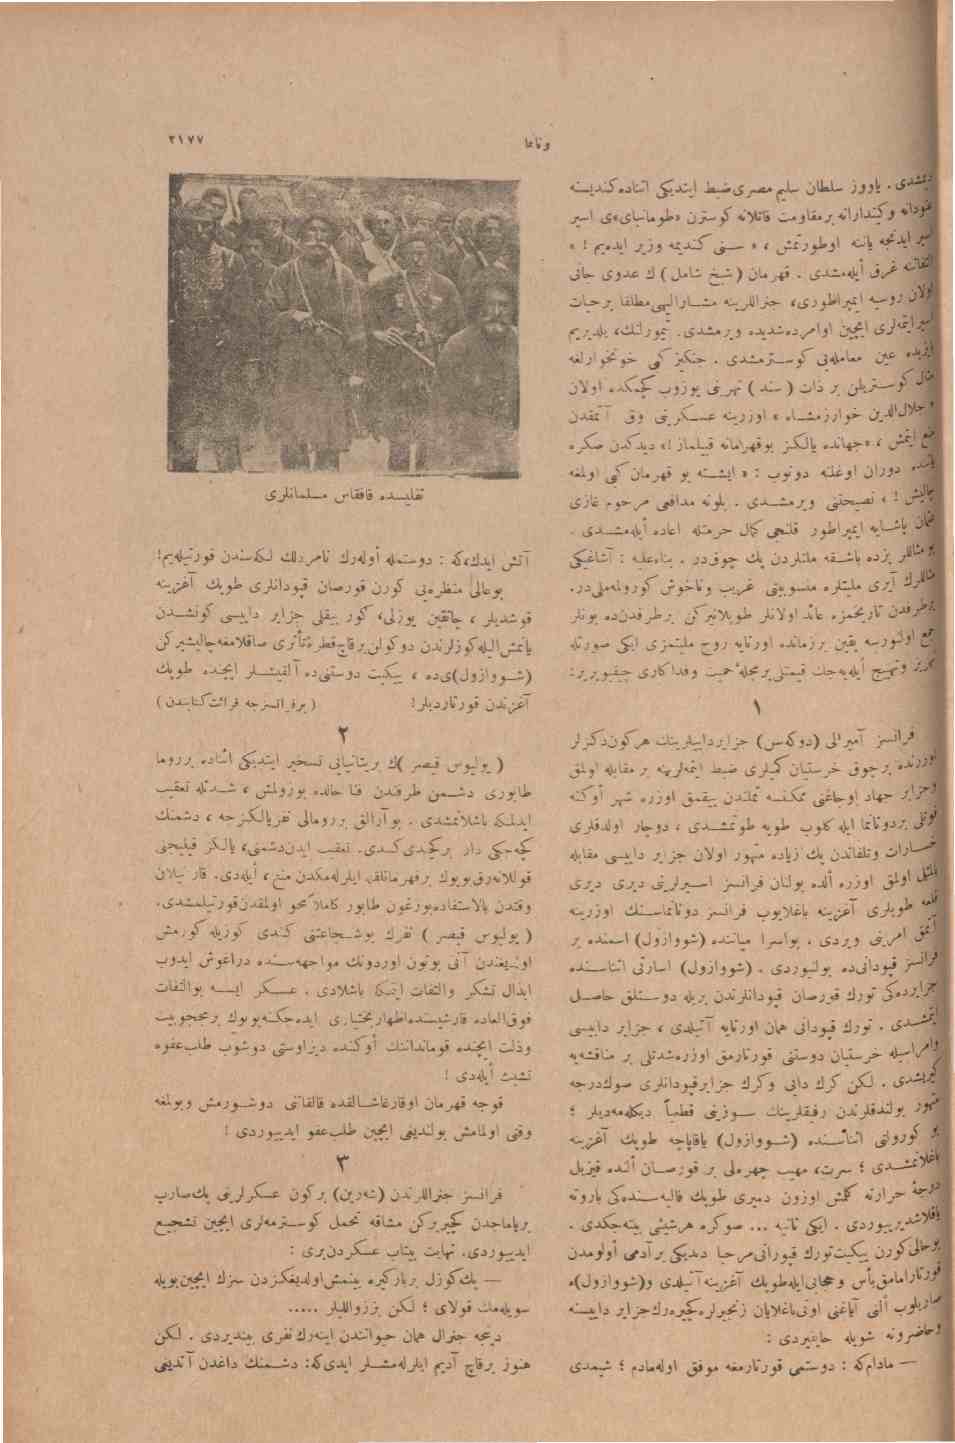 دوناما
٢١٧٧
دیمشدی . یاووز سلطان سلیم مصری ضبط ایتدیکی اثناده کندیسنه
وکیندارانه بر مقاومت قاتلانه کوسترن «طومانبای»ی اسیر
اسیر ایدنجه یاننه اوطورتمش ، « سنی کندیمه وزیر ایده‌یم ! »
التفاتنه غرق أیله‌مشدی . قهرمان (شیخ شامل) ك عدوی جانی
اولان روسیه ایمپراطوری، جنراللرینه مشارالیهی مطلقا بر حیات
اسیر ایتمه‌لری ایچین اوامر شدیده ویرمشدی. تیمورلنك، یلدیریم
بایزیده عین معامله‌یی کوسترمشدی . جنکیز کبی خونخوارلغه
مثال کوستریلن بر ذات ( سند ) نهرینی یوزوب کچمکده اولان
« جلال‌الدین خوارزمشاه » اوزرینه عسکرینی وق آتمقدن
منع ایتمش ، «جهانده یالکز بو قهرامانه قییلماز !» دیدکدن صکره
یاننده دوران اوغلنه دونوب : « ایشته بو قهرمان کبی اولمغه
چالیش ! » نصیحتنی ویرمشدی . پلونه مدافعی مرحوم غازی
عثمان پاشایه ایمپراطور قلنجی کمال حرمتله اعاده أیله‌مشدی .
بو مثاللر بزده باشقه ملتلردن پك چوقدر . بناءعلیه : آشاغیکی
مثاللرك آیری ملیتلره منسوبیتی غریب وناخوش کورولمه‌ملی‌در.
برطرفدن تاریخمزه عائد اولانلر طوپلانیرکن برطرفدن‌ده بونلر
جمع اولنورسه یقین برزمانده اورتایه روح ملیتمزی ایکی صورتله
تحریر وتهییج أیله‌یه‌جك قیمتلی برمجلهٔ حمیت وفداکاری چیقیویریر:
١
فرانسز آمیرالی (دوکه‌سن) جزایردایبلرینك هرکون دکزلر
اوزرنده برچوق خرستیان کمیلری ضبط ایتمه‌لرینه بر مقابله اولمق
وجزایر جهاد اوجاغنی ممکنسه تملندن ییقمق اوزره شهر أوکنه
قوتلی بردونانما ایله کلوب طوپه طوتمشدی ، دوچار اولدقلری
خسارات وتلفاتدن پك زیاده متهور اولان جزایر داییسی مقابله
بالمثل اولمق اوزره ألده بولنان فرانسز اسیرلرینی دیری دیری
قلعه طوپلری آغزینه باغلایوب فرانسز دونانماسنك اوزرینه
آتمق امرینی ویردی . بواسرا میاننده (شووازول) اسمنده بر
فرانسز قپودانی‌ده بولنیوردی . (شووازول) اسارتی اثناسنده
جزایرده‌کی تورك قورصان قپودانلرندن بریله دوستلق حاصل
ایتمشدی . تورك قپودانی همان اورتایه آتیلدی ، جزایر داییسی
وامراسیله خرستیان دوستنی قورتارمق اوزره شدتلی بر مناقشه‌یه
کیریشدی . لکن کرك دایی وکرك جزایر قپودانلری صوك درجه
متهور بولندقلرندن رفیقلرینك سوزینی قطعیاً دیکله‌مه‌دیلر ؛
بو کورولتی اثناسنده (شووازول) یاقاپاچه طوپك آغزینه
باغلانمشدی ؛ سرت، مهیب چهره‌لی بر قورصان ألنده قیزیل
درجهٔ حرارته کلمش اوزون دمیری طوپك فالیه‌سنده‌کی باروته
یاقلاشدیریوردی . ایکی ثانیه ... صوکره هرشیئی بیته‌جکدی .
بوحالی کورن ییکیت تورك قپودانی مرحبا دیدیکی برآدمی أولومدن
قورتارامامق یأس وحجابی‌ایله طوپك آغزینه آتیلدی و(شووازول)ه
صاریلوب ألنی آیاغنی اونی باغلایان زنجیرلره کچیره‌رك جزایر داییسنه
وحاضرونه شویله حایقیردی :
— مادام‌که : دوستمی قورتارمغه موفق اوله‌مادم ؛ شیمدی
تفلیسده قافقاس مسلمانلری
آتش ایدك،که : دوستمله أوله‌رك نامردلك لکه‌سندن قورتیله‌یم!
بوعالی منظره‌یی کورن قورصان قپودانلری طوپك آغزینه
قوشدیلر ، چاتقین یوزلی، کور بیقلی جزایر داییسی کونشدن
یانمش الیله کوزلرندن دوکولن برقاچ قطره تأثری صاقلامغه چالیشیرکن
(شووازول)ی‌ده ، ییکیت دوستنی‌ده آلقیشلر ایچنده طوپك
آغزندن قورتاردیلر! ( برفرانسزجه قرائت کتابندن )
٢
( یولیوس قیصر )ك بریتانیایی تسخیر ایتدیکی اثناده برروما
طابوری دشمن طرفندن فنا حالده بوزولمش ، شدتله تعقیب
ایدلمکه باشلانمشدی . بوآرالق برومالی نفریالکزجه ، دشمنك
کچه‌جکی دار برکچیدی کسدی. تعقیب ایدن دشمنی، یالکز قیلیجنی
قوللانه‌رق بویوك برقهرمانلقله ایلرله‌مکدن منع، أیله‌دی. قازانیلان
وقتدن بالاستفاده یورغون طابور کاملاً محو اولمقدن قورتیلمشدی.
( یولیوس قیصر ) نفرك بوشجاعتنی کندی کوزیله کورمش
اولدیغندن آنی بوتون اوردونك مواجهه‌سنده درآغوش ایدوب
ابذال تشکر والتفات ایتمکه باشلادی . عسکر ایسه بوالتفات
فوق‌العاده قارشیسنده اظهار بختیاری ایده‌جکنه بویوك برمحجوبیت
وذلت ایچنده قومانداننك أوکنده دیزاوستی دوشوب طلب‌عفوه
تشبث أیله‌دی !
قوجه قهرمان اوقارغاشالقده قالقاننی دوشورمش وبولمغه
وقتی اولمامش بولندیغی ایچین طلب‌عفو ایدییوردی !
٣
فرانسز جنراللرندن (شه‌رین) برکون عسکرلرینی پك صارپ
بریاماجدن کچیریرکن مشاقه تحمل کوسترمه‌لری ایچین تشجیع
ایدییوردی. نهایت بیتاب عسکردن بری :
— پك کوزل بربارکیره بینمش اولدیغکزدن سزك ایچین بویله
سویله‌مك قولای ؛ لکن بززواللیلر .....
دینجه جنرال همان حیوانندن اینه‌رك نفری بیندیردی . لکن
هنوز برقاچ آدیم ایلرله‌مشلر ایدی‌که: دشمنك داغدن آتدیغی